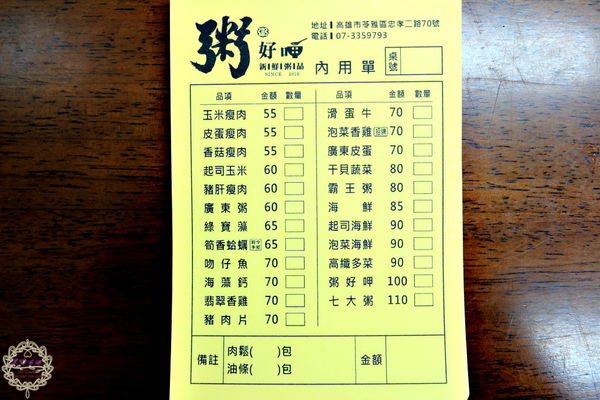 粥 好呷
新鮮粥品
SINCE 2010
地址 高雄市苓雅區忠孝二路70號
電話 07-3359793
內用單 桌號
品項 金額 數量
玉米瘦肉 55
皮蛋瘦肉 55
香菇瘦肉 55
起司玉米 60
豬肝瘦肉 60
廣東粥 60
綠寶藻 65
筍香蛤蠣 65
吻仔魚 70
海藻鈣 70
翡翠香雞 70
豬肉片 70
品項 金額 數量
滑蛋牛 70
泡菜香雞 70
廣東皮蛋 70
干貝蔬菜 80
霸王粥 80
海鮮 85
起司海鮮 90
泡菜海鮮 90
高纖多菜 90
粥好呷 100
七大粥 110
備註
肉鬆( )包
油條( )包
金額